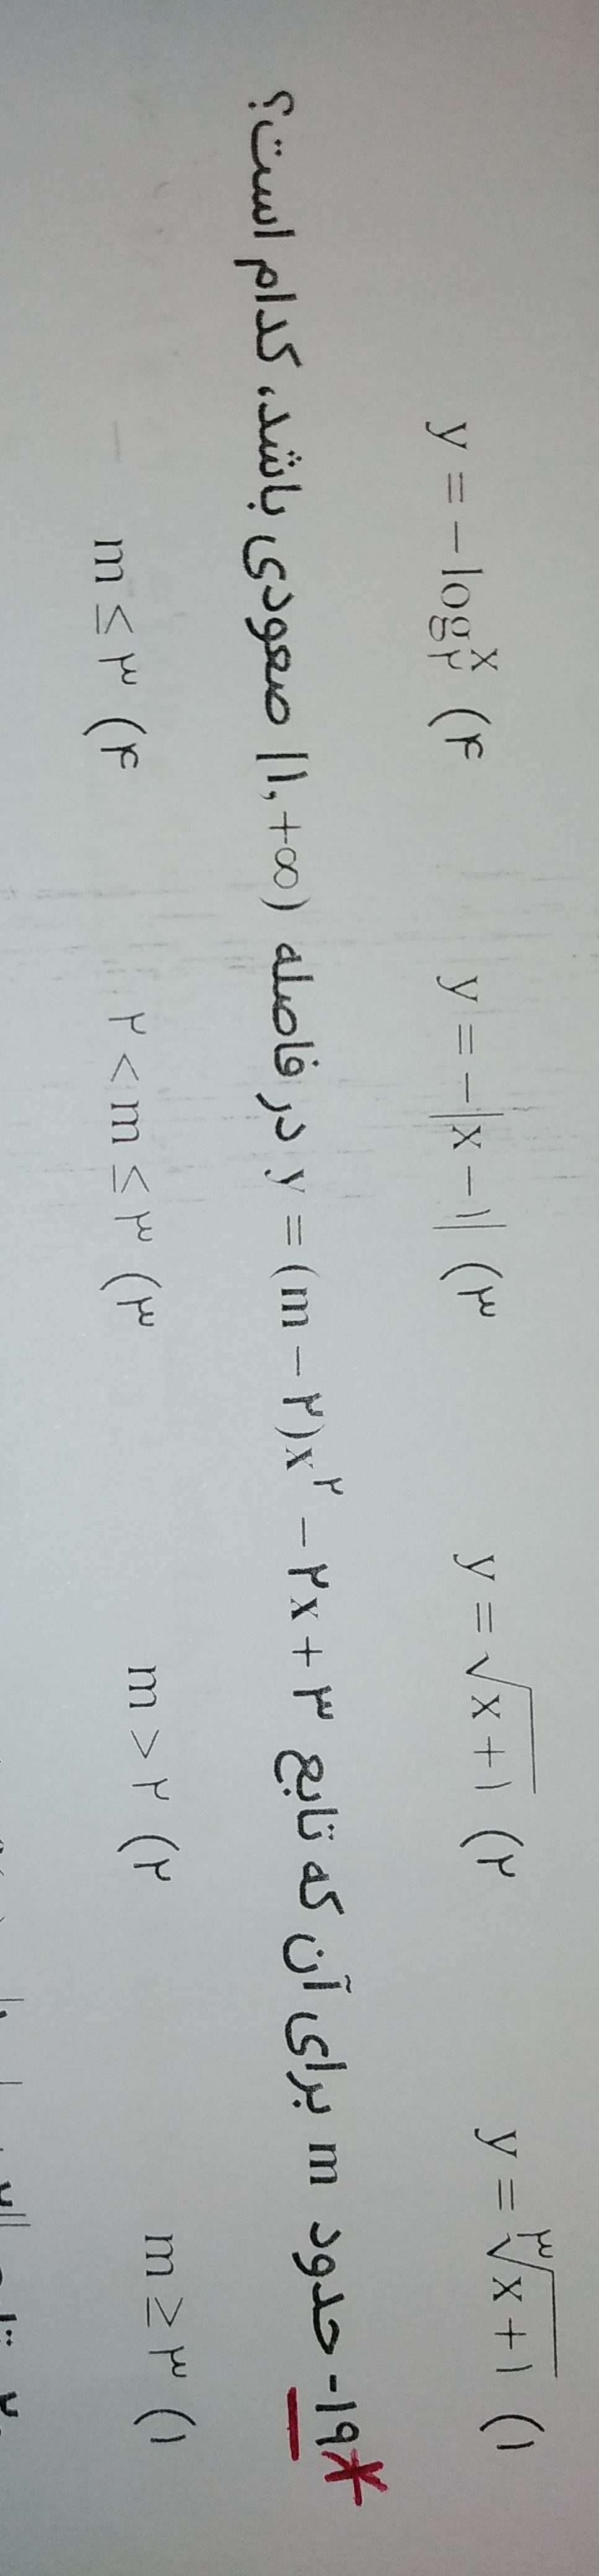 ۱) y = ∛(x + ۱) ۲) y = √(x + ۱) ۳) y = −|x − ۱| ۴) y = −log₂ˣ
*۱۹- حدود m برای آن که تابع y = (m − ۲)x² − ۲x + ۳ در فاصله (۱, +∞) صعودی باشد، کدام است؟
۱) m ≥ ۳ ۲) m > ۲ ۳) ۲ < m ≤ ۳ ۴) m ≤ ۳